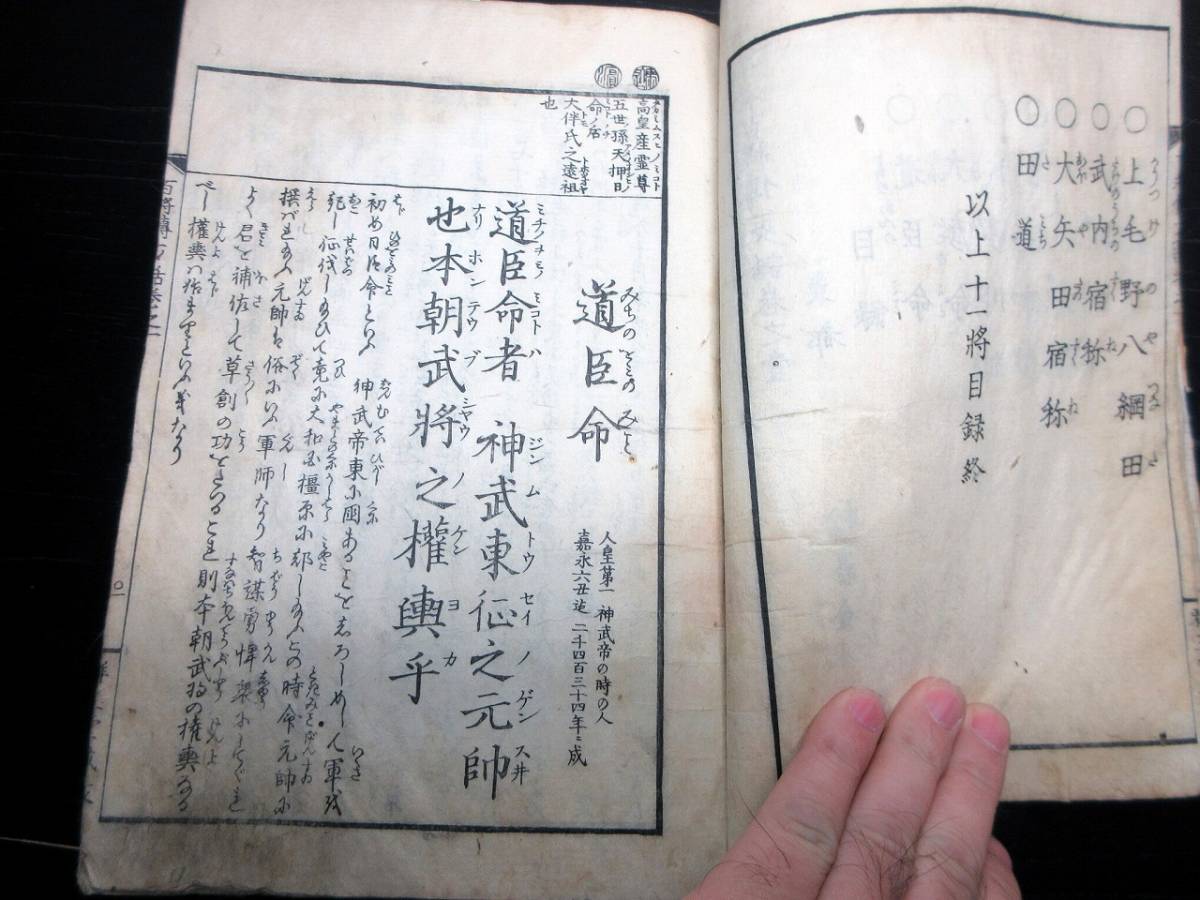 ○上毛野八綱田
○武内宿祢
○大矢田宿祢
○田道
以上十一將目録終
高皇産霊尊
五世孫天押日
命ノ後
大伴氏之遠祖
也
道臣命
人皇第一神武帝の時の人
嘉永六丑迄二千四百三十四年ニ成
道臣命者神武東征之元帥
也本朝武將之權輿乎
初め日臣命といふ神武帝東に國あることをしろしめし人軍を
起し征伐し給ひて竟に大和国橿原に都し給ふこの時命元帥に
撰バれ給ふ元帥は俗にいふ軍師なり智謀勇悍衆にすぐれ
よく君を補佐して草創の功をなすこれ則本朝武將の権輿なる
べし權輿ハ始まりといふ義なり